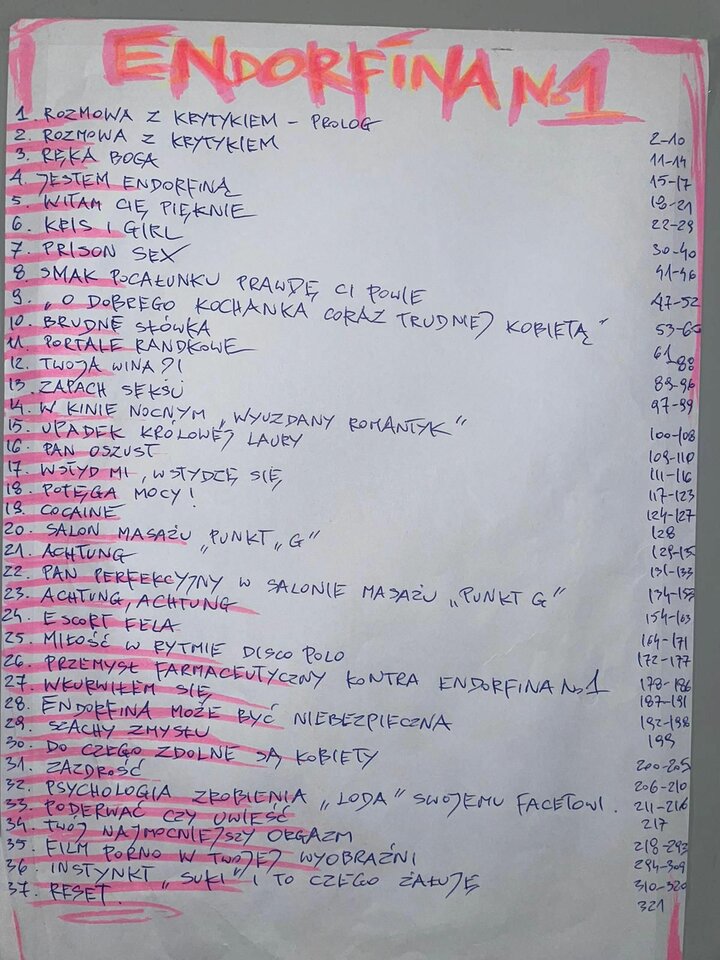 ENDORFINA No1
1. ROZMOWA Z KRYTYKIEM - PROLOG
2. ROZMOWA Z KRYTYKIEM 2-10
3. RĘKA BOGA 11-14
4. JESTEM ENDORFINĄ 15-17
5. WITAM CIĘ PIĘKNIE 18-21
6. KRIS I GIRL 22-29
7. PRISON SEX 30-40
8. SMAK POCAŁUNKU PRAWDĘ CI POWIE 41-46
9. "O DOBREGO KOCHANKA CORAZ TRUDNIEJ KOBIETĄ" 47-52
10. BRUDNE SŁÓWKA 53-60
11. PORTALE RANDKOWE 61-88
12. TWOJA WINA?! 89-96
13. ZAPACH SEKSU 97-99
14. W KINIE NOCNYM "WYUZDANY ROMANTYK"
15. UPADEK KRÓLOWEJ LAURY 100-108
16. PAN OSZUST 109-110
17. WSTYD MI, WSTYDZĘ SIĘ 111-116
18. POTĘGA MOCY! 117-123
19. COCAINE 124-127
20. SALON MASAŻU "PUNKT "G" 128
21. ACHTUNG
22. PAN PERFEKCYJNY W SALONIE MASAŻU "PUNKT G" 131-133
23. ACHTUNG, ACHTUNG
24. ESCORT FELA 154-163
25. MIŁOŚĆ W RYTMIE DISCO POLO 164-171
26. PRZEMYSŁ FARMACEUTYCZNY KONTRA ENDORFINA No1 172-177
27. WKURWIŁEM SIĘ 178-186
28. ENDORFINA MOŻE BYĆ NIEBEZPIECZNA 187-191
29. SZACHY ZMYSŁU 192-198
30. DO CZEGO ZDOLNE SĄ KOBIETY 199
31. ZAZDROŚĆ 200-205
32. PSYCHOLOGIA ZROBIENIA "LODA" SWOJEMU FACETOWI. 206-210
33. PODERWAĆ CZY UWIEŚĆ 211-216
34. TWÓJ NAJMOCNIEJSZY ORGAZM 217
35. FILM PORNO W TWOJEJ WYOBRAŹNI 218-293
36. INSTYNKT "SUKI" I TO CZEGO ŻAŁUJĘ 294-309
37. RESET. 310-320
321